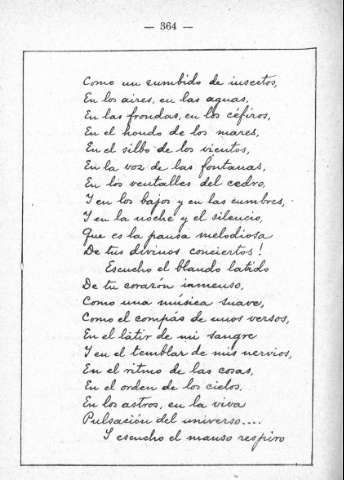 — 364 —
Como un zumbido de insectos,
En los aires, en las aguas,
En las frondas, en los céfiros,
En el hondo de los mares,
En el silbo de los vientos,
En la voz de las fontanas,
En los ventalles del cedro,
Y en los bajos y en las cumbres,
Y en la noche y el silencio,
Que es la pausa melodiosa
De tus divinos conciertos!
Escucho el blando latido
De tu corazón inmenso,
Como una música suave,
Como el compás de unos versos,
En el látir de mi sangre
Y en el temblar de mis nervios,
En el ritmo de las cosas,
En el orden de los cielos,
En los astros, en la viva
Pulsación del universo....
Y escucho el manso respiro